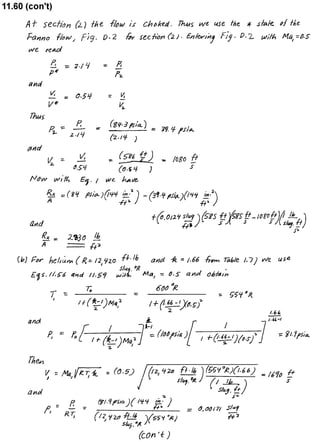 11.60 (con't)
At section (2) the flow is choked. Thus we use the * state of the
Fanno flow, Fig. D.2 for section (2). Entering Fig. D.2 with Ma₁=0.5
we read
P₁/P* = 2.14 = P₁/P₂
and
V₁/V* = 0.54 = V₁/V₂
Thus
P₂ = P₁/2.14 = (84.3 psia)/(2.14) = 39.4 psia
and
V₂ = V₁/0.54 = (586 ft/s)/(0.54) = 1080 ft/s
Now with Eq. 1 we have
Rₓ/A = (84 psia)(144 in.²/ft²) - (39.4 psia)(144 in.²/ft²)
+(0.0124 slug/ft³)(585 ft/s)(585 ft/s - 1080 ft/s)(1 lb/slug.ft/s²)
and
Rₓ/A = 2830 lb/ft²
(b) For helium (R = 12,420 ft.lb/slug.°R and k = 1.66 from Table 1.7) we use
Eqs. 11.56 and 11.59 with Ma₁ = 0.5 and obtain
T₁ = T₀/1+(k-1/2)Ma₁² = 600°R/1+(1.66-1/2)(0.5)² = 554°R
and
P₁ = P₀[1/1+(k-1/2)Ma₁²]^k/k-1 = (100 psia)[1/1+(1.66-1/2)(0.5)²]^1.66/1.66-1 = 81.9 psia
Then
V₁ = Ma₁√RT₁k = (0.5)√(12,420 ft.lb/slug.°R)(554°R)(1.66)/(1 lb/slug.ft/s²) = 1690 ft/s
and
ρ₁ = P₁/RT₁ = (81.9 psia)(144 in.²/ft²)/(12,420 ft.lb/slug.°R)(554°R) = 0.00171 slug/ft³
(con't)